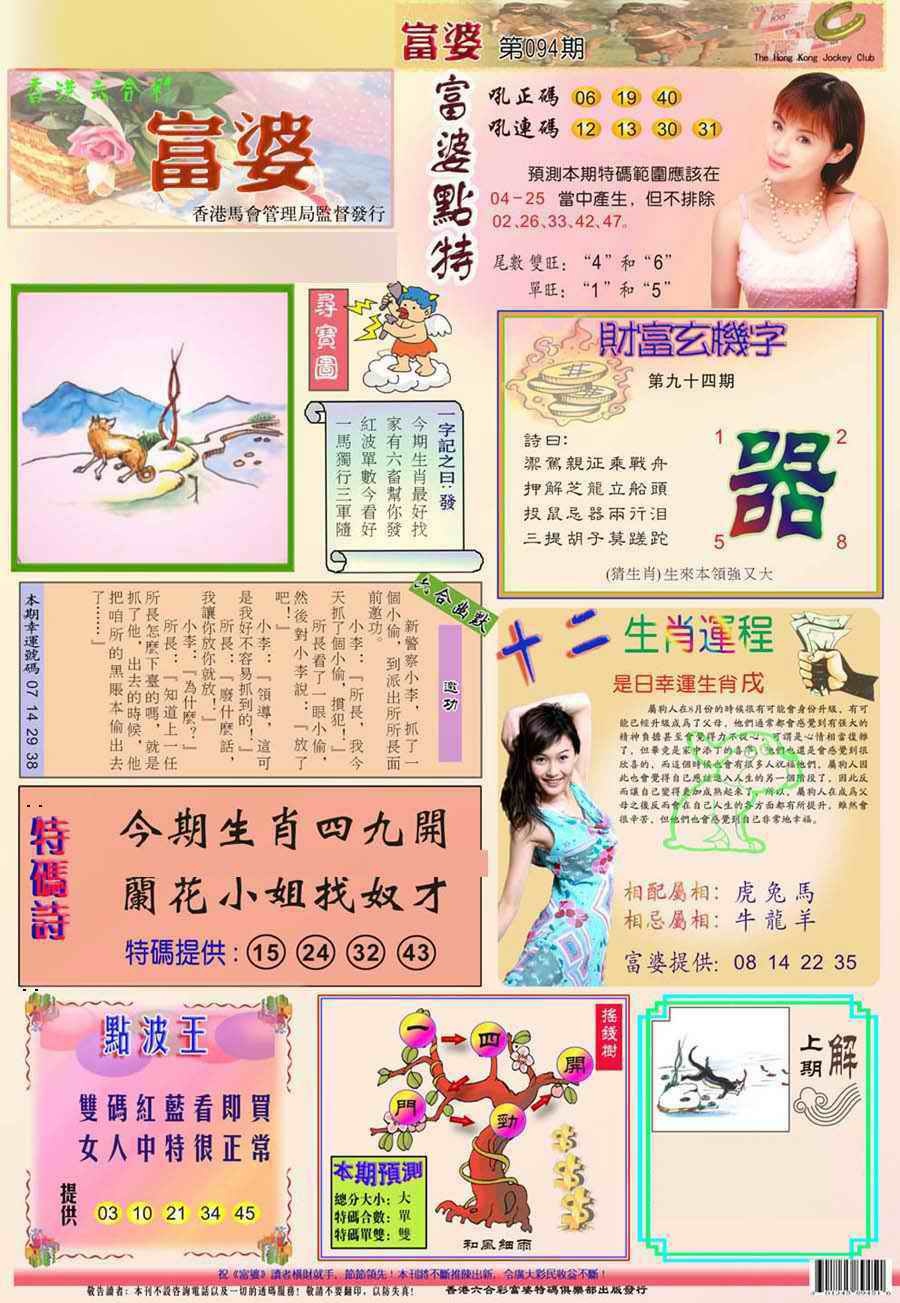 富婆 第094期
The Hong Kong Jockey Club
香港六合彩
富婆
香港馬會管理局監督發行
富婆點特
吼正碼 06 19 40
吼連碼 12 13 30 31
預測本期特碼範圍應該在
04-25 當中產生，但不排除
02、26、33、42、47。
尾數雙旺：“4”和“6”
單旺：“1”和“5”
尋寶圖
一字記之曰：發
今期生肖最好找
家有六畜幫你發
紅波單數今看好
一馬獨行三軍隨
財富玄機字
第九十四期
詩曰：
禦駕親征乘戰舟
押解芝龍立船頭
投鼠忌器兩行泪
三提胡子莫蹉跎
1 2
器
5 8
(猜生肖)生來本領強又大
六合幽默
邀功
新警察小李，抓了一
個小偷，到派出所所長面
前邀功。
小李：『所長，我今
天抓了個小偷，慣犯！』
所長看了一眼小偷，
然後對小李說：『放了
吧！』
小李：『領導，這可
是我好不容易抓到的！』
所長：『廢什麼話，
我讓你放你就放！』
小李：『為什麼？』
所長：『知道上一任
所長怎麼下臺的嗎，就是
抓了他，出去的時候，他
把咱所的黑賬本偷出去
了……』
本期幸運號碼 07 14 29 38
十二生肖運程
是日幸運生肖戌
屬狗人在8月份的時候很有可能會身份升級，有可
能已經升級成爲了父母，他們通常都會感覺到有强大的
精神負擔甚至會覺得力不從心，可謂是心情相當復雜
了，但畢竟是家中添丁的喜事，他們也還是會感覺到很
欣喜的，而這個時候也會有很多人祝福他們，屬狗人因
此也會覺得自己應該進入人生的另一個階段了，因此反
而讓自己變得更加成熟起來了，所以，屬狗人在成爲父
母之後反而會在自己人生的各方面都有所提升，雖然會
很辛苦，但他們也會感覺到自己非常地幸福。
相配屬相：虎兔馬
相忌屬相：牛龍羊
富婆提供：08 14 22 35
特碼詩
今期生肖四九開
蘭花小姐找奴才
特碼提供：15 24 32 43
點波王
雙碼紅藍看即買
女人中特很正常
提供 03 10 21 34 45
搖錢樹
一 四 開
門 勁
本期預測
總分大小：大
特碼合數：單
特碼單雙：雙
和風細雨
上期解
祝《富婆》讀者橫財就手，節節領先！本刊將不斷推陳出新，令廣大彩民收益不斷！
敬告讀者：本刊不設咨詢電話以及一切的透碼服務！敬請不要翻印，以防失真！ 香港六合彩富婆特碼俱樂部出版發行